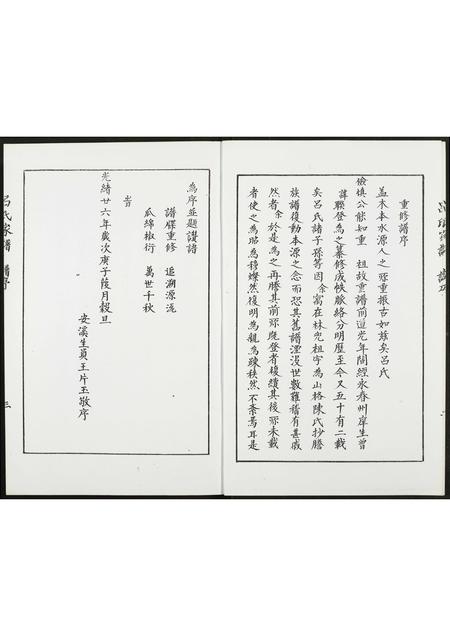 重修譜序
蓋木本水源人之所重振古如茲矣呂氏
儉填公能知重 祖故重譜前道光年間經永春州庠生曾
諱聯登為之纂修成帙脈絡分明歷至今又五十有二載
矣呂氏諸子孫等因余富在林兜祖宇為山格陳氏抄謄
族譜復動本源之念而恐其舊譜湮沒世數難稽有甚戚
然者余於是為之再謄其前所既登者復續其後所未載
者使之為昭為穆燦然復明為親為疎秩然不紊焉耳是
為序並題讚諸
譜牒重修 追溯源流
瓜綿椒衍 萬世千秋
旹
光緒廿六年歲次庚子葭月穀旦
安溪生員王片玉敬序
呂氏家譜 譜序
三